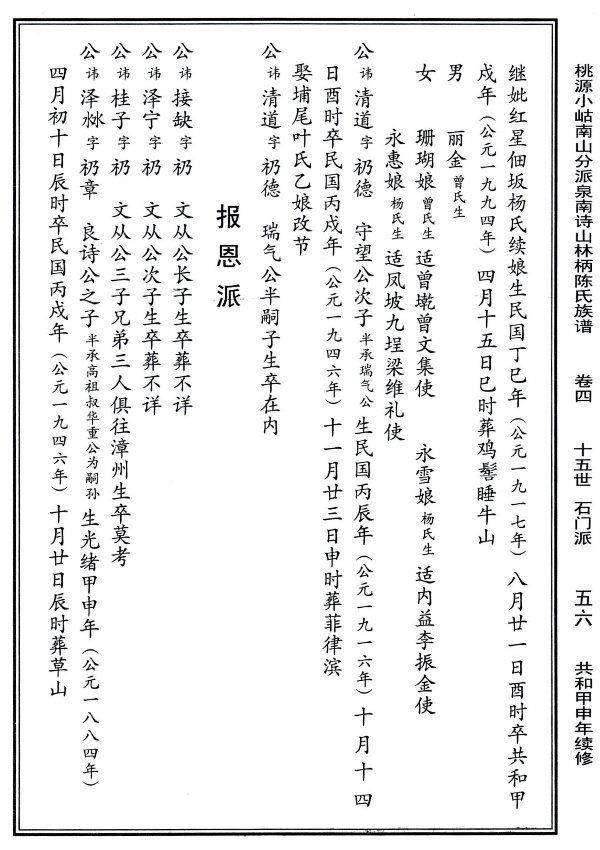 桃源小岵南山分派泉南诗山林柄陈氏族谱 卷四 十五世 石门派 五六 共和甲申年续修
继妣红星佃坂杨氏续娘生民国丁巳年（公元一九一七年）八月廿一日酉时卒共和甲
戌年（公元一九九四年）四月十五日巳时葬鸡髻睡牛山
男 丽金曾氏生
女 珊瑚娘曾氏生适曾墩曾文集使 永雪娘杨氏生适内益李振金使
永惠娘杨氏生适凤坡九埕梁维礼使
公讳清道字礽德 守望公次子半承瑞气公生民国丙辰年（公元一九一六年）十月十四
日酉时卒民国丙戌年（公元一九四六年）十一月廿三日申时葬菲律滨
娶埔尾叶氏乙娘改节
公讳清道字礽德 瑞气公半嗣子生卒在内
报恩派
公讳接缺字礽 文从公长子生卒葬不详
公讳泽宁字礽 文从公次子生卒葬不详
公讳桂子字礽 文从公三子兄弟三人俱往漳州生卒莫考
公讳泽字礽章 良诗公之子半承高祖叔华重公为嗣孙生光绪甲申年（公元一八八四年）
四月初十日辰时卒民国丙戌年（公元一九四六年）十月廿日辰时葬草山